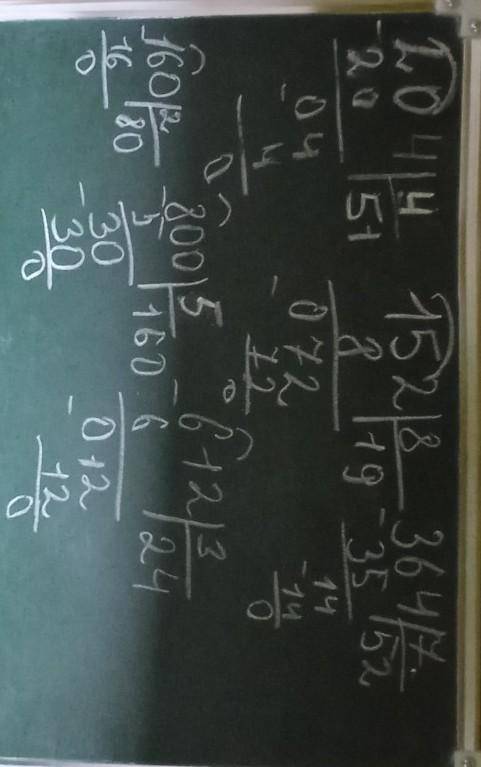 204|4 152|8 364|7
-20 |51 8 |19 -35 |52
-04 -072 14
4 72 -14
0 0 0
160|2 800|5 612|3
-16 |80 -5 |160 -6 |24
0 30 -012
-30 12
0 0